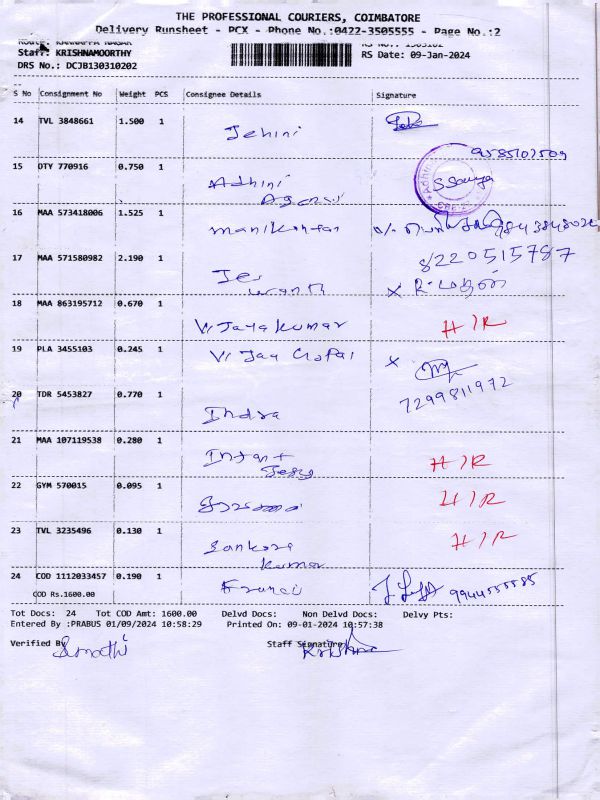 THE PROFESSIONAL COURIERS, COIMBATORE
Delivery Runsheet - PCX - Phone No.:0422-3505555 - Page No.:2
Staff: KRISHNAMOORTHY
RS Date: 09-Jan-2024
DRS No.: DCJB130310202
S No Consignment No Weight PCS Consignee Details Signature
14 TVL 3848661 1.500 1 Jehini
9585102509
15 DTY 770916 0.750 1 Adhini
S Sowya
16 MAA 573418006 1.525 1 manikantan
8220515787
17 MAA 571580982 2.190 1
x R. மதன்
18 MAA 863195712 0.670 1 Vijayakumar H/R
19 PLA 3455103 0.245 1 Vijay Gopal x
7299811972
20 TDR 5453827 0.770 1 Indra
21 MAA 107119538 0.280 1 Infant H/R
22 GYM 570015 0.095 1 H/R
23 TVL 3235496 0.130 1 Sankara H/R
kumar
24 COD 1112033457 0.190 1 Franci 9944555585
COD Rs.1600.00
Tot Docs: 24 Tot COD Amt: 1600.00 Delvd Docs: Non Delvd Docs: Delvy Pts:
Entered By :PRABUS 01/09/2024 10:58:29 Printed On: 09-01-2024 10:57:38
Verified By Staff Signature
Krishna